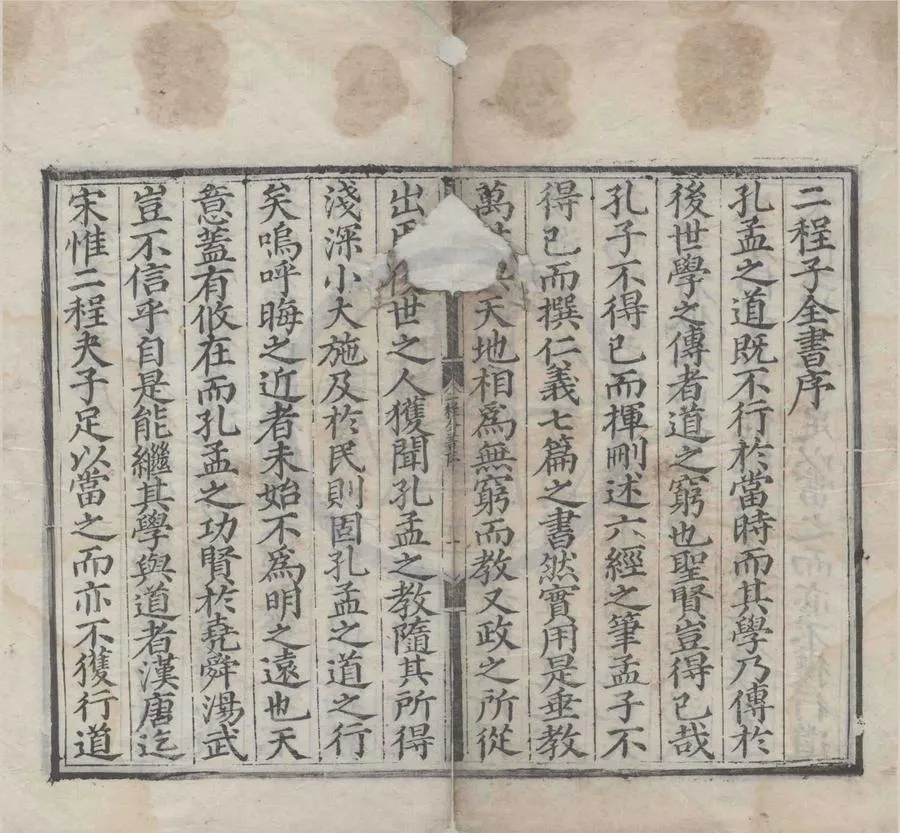 二程子全書序
孔孟之道既不行於當時而其學乃傳於
後世學之傳者道之窮也聖賢豈得已哉
孔子不得已而揮刪述六經之筆孟子不
得已而撰仁義七篇之書然實用是垂教
萬天地相爲無窮而教又政之所從
出世之人獲聞孔孟之教隨其所得
淺深小大施及於民則固孔孟之道之行
矣嗚呼晦之近者未始不爲明之遠也天
意蓋有攸在而孔孟之功賢於堯舜湯武
豈不信乎自是能繼其學與道者漢唐迄
宋惟二程夫子足以當之而亦不獲行道